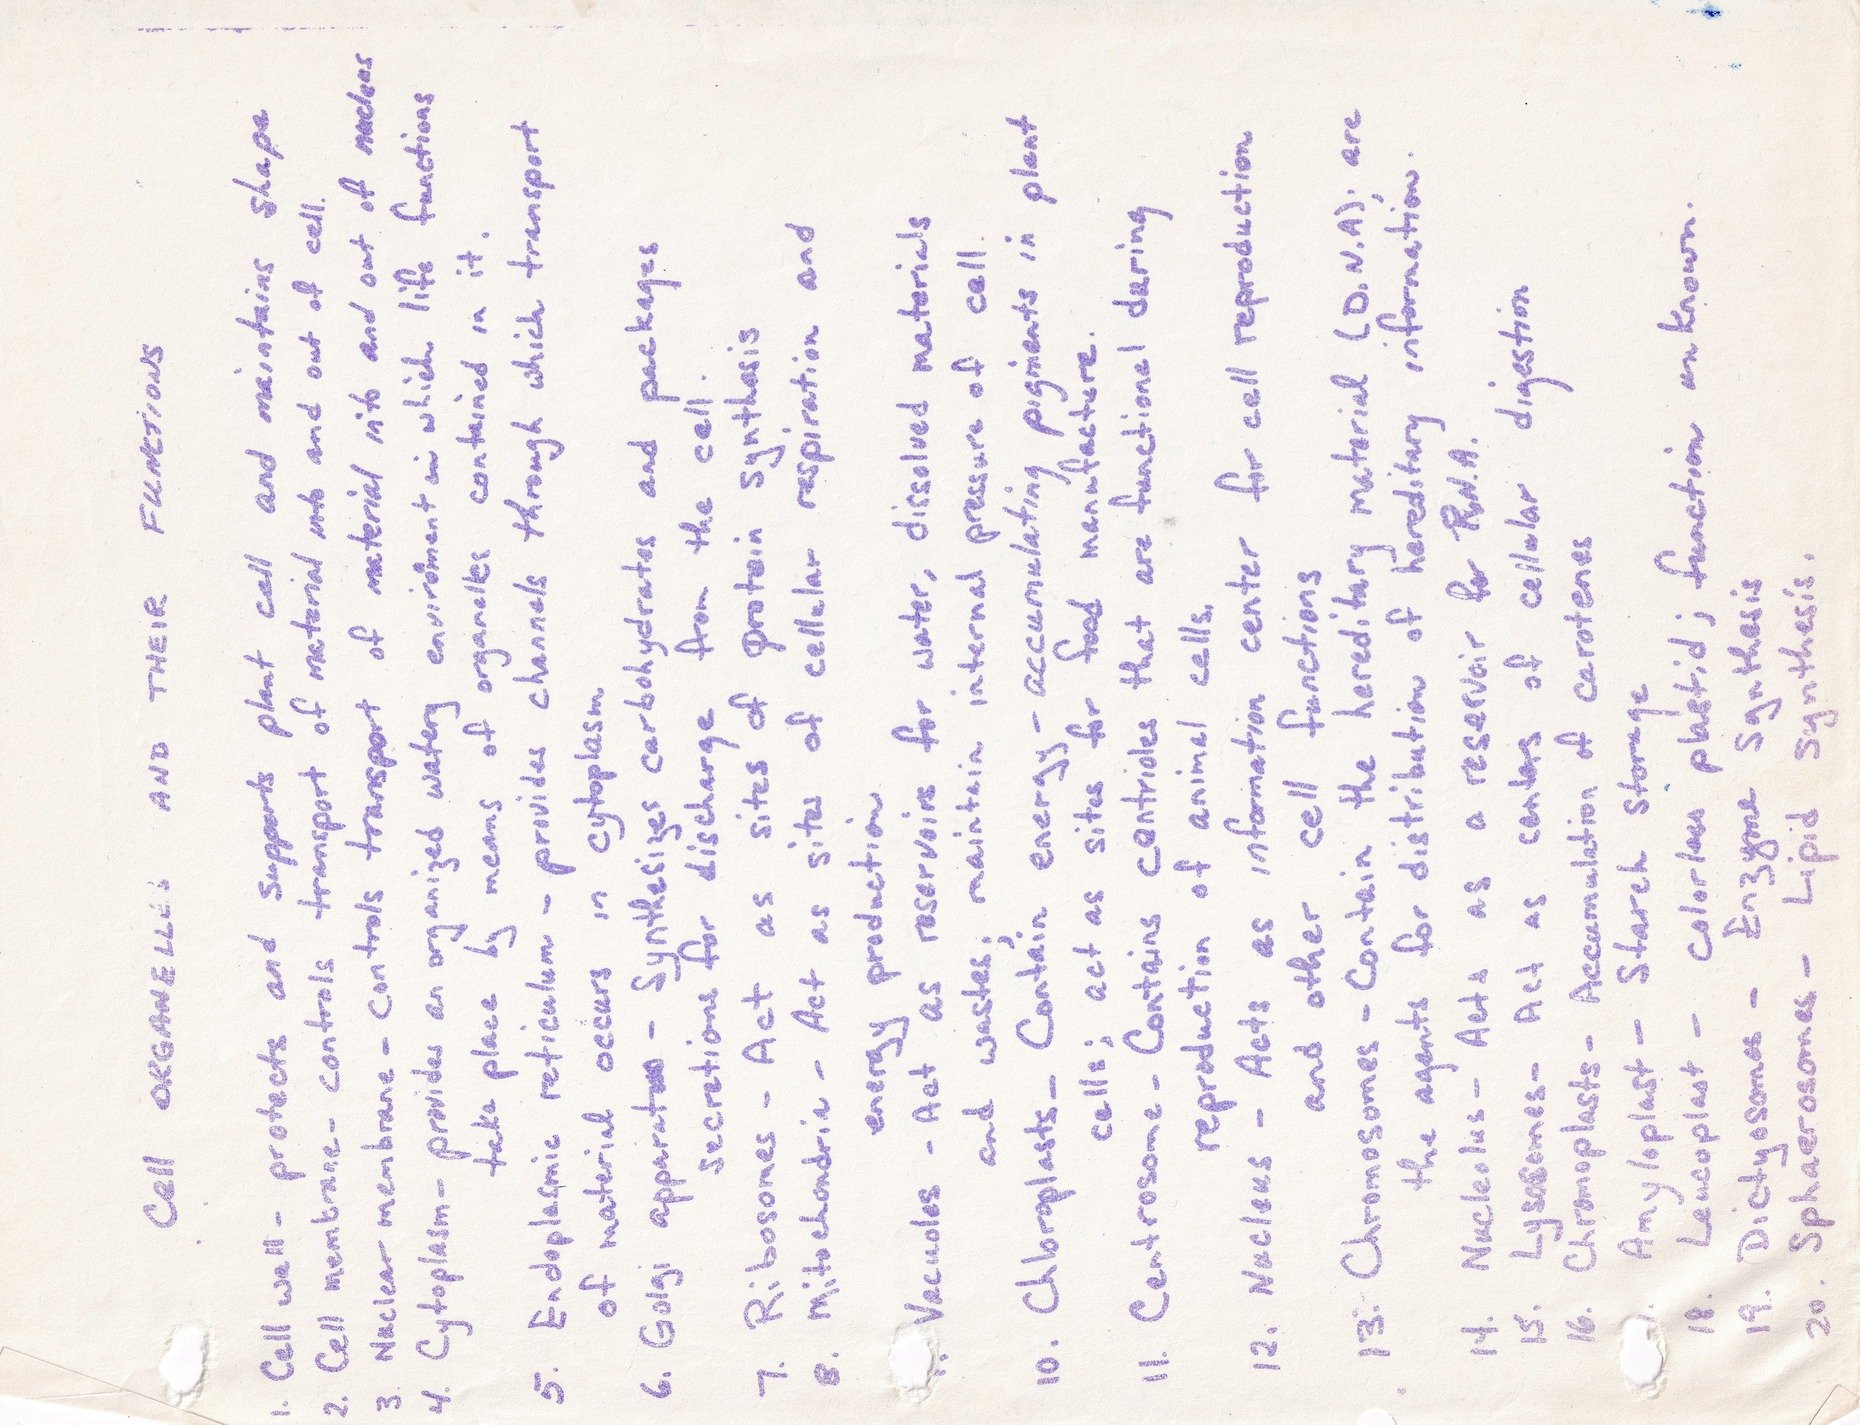 Cell ORGANELLES AND THEIR FUNCTIONS
1. Cell wall - protects and supports plant cell and maintains shape
2. Cell membrane - controls transport of material into and out of cell.
3. Nuclear membrane - controls transport of material into and out of nucleus
4. Cytoplasm - provides an organized watery enviroment in which life functions
take place by means of organelles contained in it.
5. Endoplasmic reticulum - provides channels through which transport
of material occurs in cytoplasm
6. Golgi apparatus - Synthesizes carbohydrates and packages
secretions for discharge from the cell.
7. Ribosomes - Act as sites of protein synthasis
8. Mitochondria - Act as sites of cellular respiration and
energy production
9. Vacuoles - Act as reservoirs for water, dissolved materials
and wastes; maintain internal pressure of cell.
10. Chloroplasts - Contain energy-accumulating pigments in plant
cells; act as sites for food manufacture.
11. Centrosome - Contains centrioles that are functional during
reproduction of animal cells.
12. Nucleus - Acts as information center for cell reproduction
and other cell functions
13. Chromosomes - Contain the hereditary material (D.N.A); are
the agents for distribution of hereditary information.
14. Nucleolus - Acts as a reservoir for R.N.A.
15. Lysosomes - Act as centers of cellular digestion
16. Chromoplasts - Accumulation of carotenes
Amyloplast - Starch Storage
18. Leucoplast - colorless plastid; function unknown.
19. Dictyosomes - Enzyme Synthesis
20. Sphaerosomes - Lipid synthesis.